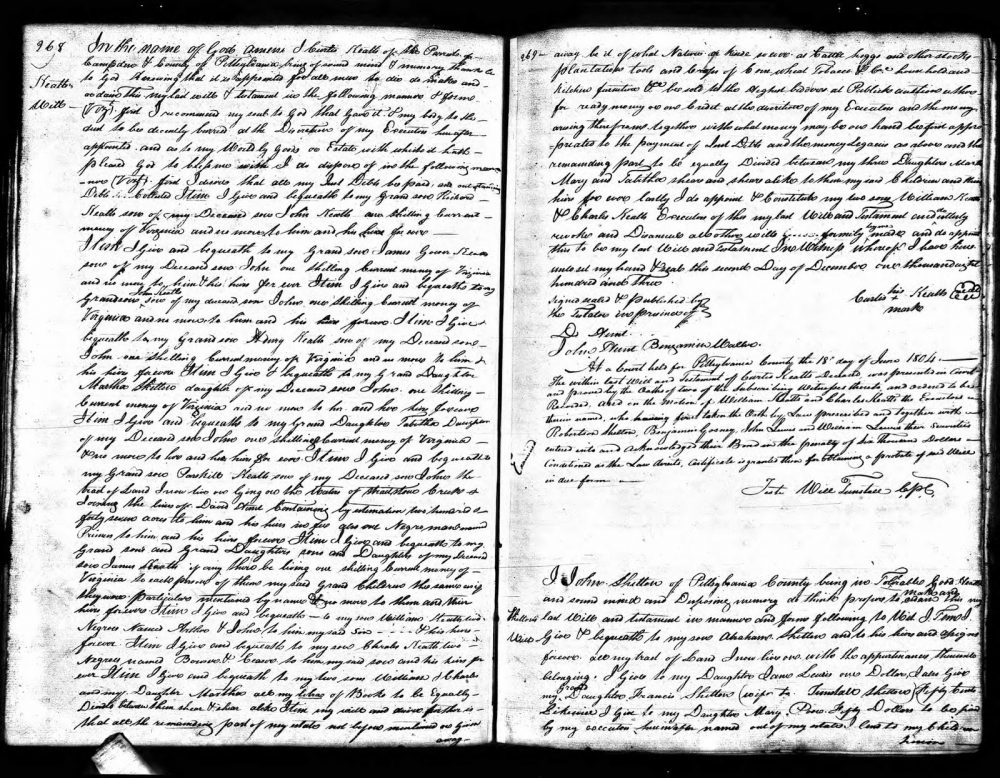 268
Keatts
Will
In the name of God amen I Curtis Keatts of the Parrish of
Campden & County of Pittsylvania being of sound mind & memory thanks be
to God knowing that it is appointed for all men to die do make and
ordain this my last will & testament in the following manner & form
(Viz) first I recommend my soul to God that Gave it & my body to the
dust to be decently buried at the Discretion of my Executors hereafter
appointed and as to my Worldly Goods or Estate with which it hath
pleased God to bless me with I do dispose of in the following man
ner (Viz) first I desire that all my Just Debts be paid and out standing
Debts Collected Item I Give and bequeath to my Grand son Richard
Keatts son of my Deceased son John Keatts one Shilling Current
money of Virginia and no more to him and his heirs for ever
Item I Give and bequeath to my Grand son James Keatts
son of my Deceased son John one shilling Current money of Virginia
and no more to him & his heirs for ever Item I Give and bequeath to my
Grandson John Keatts son of my deceased son John one Shilling Current money of
Virginia and no more to him and his heirs forever Item I Give &
bequeath to my Grand son Henry Keatts son of my Deceased son
John one shilling Current money of Virginia and no more to him &
his heirs forever Item I Give & bequeath to my Grand Daughter
Martha Shelton daughter of my Deceased son John one Shilling
Current money of Virginia and no more to her and her heirs forever
Item I Give and bequeath to my Grand Daughter Tabitha Daughter
of my Deceased son John one shilling Current money of Virginia
& no more to her and her heirs for ever Item I Give and bequeath to
my Grand son Keatts son of my Deceased son John the
tract of Land I now live on lying on the Waters of Creek &
Joining the lines of David Hunt Containing by estimation two hundred &
forty seven acres to him and his heirs in fee also one Negro man named
Primus to him and his heirs forever Item I Give and bequeath to my
Grand sons and Grand Daughters sons and Daughters of my Deceased
son James Keatts if any there be living one shilling Current money of
Virginia to each person of them my said Grand Children the same as if
they were particular mentioned by name & no more to them and their
heirs forever Item I Give and bequeath to my son William Keatts two
Negroes Named Arthur & John to him my said son & his heirs
forever Item I Give and bequeath to my son Charles Keatts two
Negroes named & Ceaser to him my said son and his heirs for
ever Item I Give and bequeath to my two sons William & Charles
and my Daughter Martha all my of Books to be Equally
Divided between them share & share alike Item my will and desire further is
that all the remaining part of my estate not before mentioned or given
away
269
away be it of what Nature or kind soever as Cattle hoggs and other stocks
plantation tools and Crops of Corn wheat Tobacco & Ca household and
kitchen furniture &c be sold to the Highest bidder at Publick auction either
for ready money or on Credit at the discretion of my Executors and the money
arising therefrom together with what money may be on hand be first appro
priated to the payment of Just Debts and the money legacies as above and the
remaining part to be equally Divided between my three Daughters Martha
Mary and Tabitha share and share alike to them my said Children and their
heirs for ever lastly I do appoint & Constitute my two sons William Keatts
& Charles Keatts Executors of this my last Will and Testament and utterly
revoke and Disannul all other wills by me formerly made and do appoint
this to be my last Will and Testament In Witness whereof I have here
unto set my hand & seal this second Day of December one thousand eight
hundred and three
signed sealed & published by
the Testator in presence of
Curtis his x mark Keatts
D. Hunt
John Hunt Benjamin Walker
At a Court held for Pittsylvania County the 18th day of June 1804
The within last Will and Testament of Curtis Keatts Deceased was presented in Court
and proved by the Oaths of two of the subscribing Witnesses thereto and ordered to be
Recorded, and on the Motion of William Keatts and Charles Keatts the Executors
therein named who having first taken the Oath by Law prescribed and together with
Robertson Shelton, Benjamin Gosney, John Lewis and William Lewis their Securities
entered into and Acknowledged their Bond in the penalty of six Thousand Dollars
Conditioned as the Law directs, Certificate is granted them for obtaining a probate of said Will
in due form
Teste Will Tunstall CPC
Shelton's
Will
I John Shelton of Pittsylvania County being in Tolerable Good Health
and sound mind and Disposing memory do think proper to make and ordain this my
last Will and testament in manner and form following to Wit Item I
Give & bequeath to my son Abraham Shelton and to his heirs and assigns
forever all my tract of Land I now live on with the appurtenances thereunto
belonging. I Give to my Daughter Jane Lewis one Dollar, I also Give
my Grand Daughter Francis Shelton wife to Tunstall Shelton Fifty Cents
Likewise I Give to my Daughter Mary Fifty Dollars to be paid
by my executor hereinafter named out of my estate And to my Children